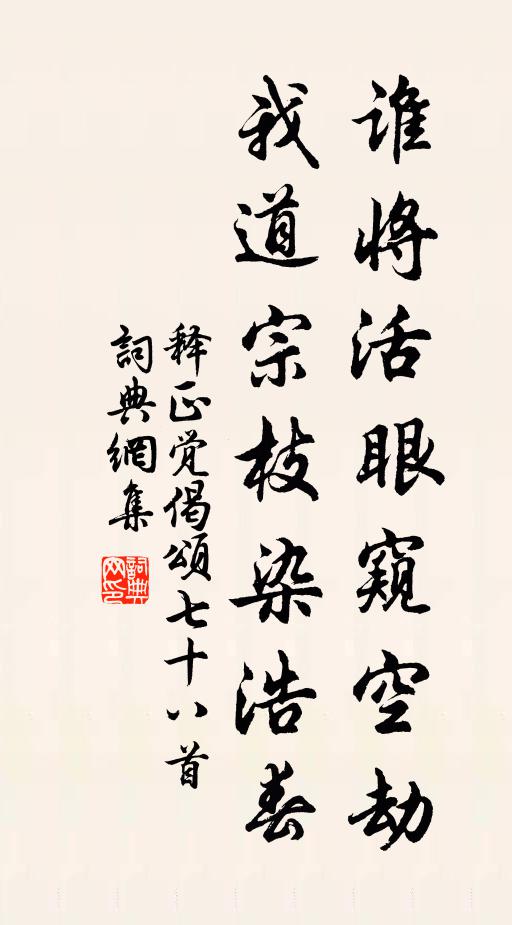 谁将活眼窥空劫
我道宗枝染浩春
释正觉偈颂七十八首
詞典網集
詞典网印